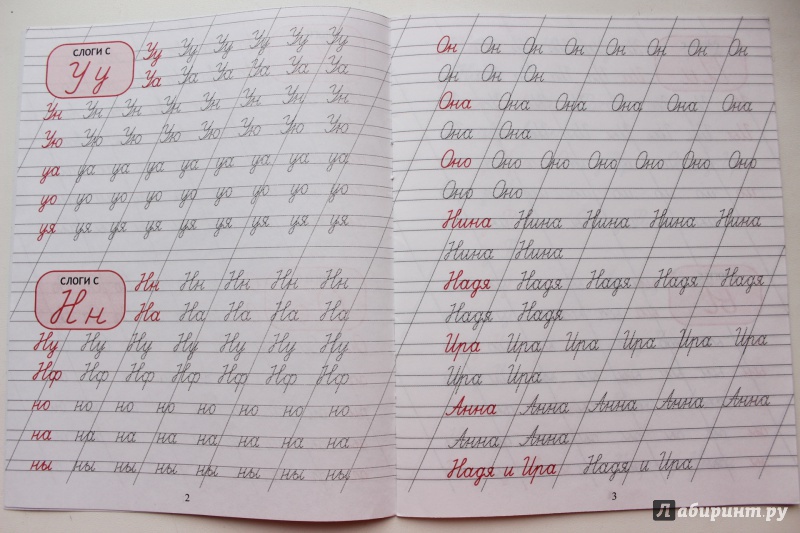 СЛОГИ С
Уу
Уу Уу Уу Уу Уу Уу
Уа Уа Уа Уа Уа Уа
Ун Ун Ун Ун Ун Ун Ун Ун
Ую Ую Ую Ую Ую Ую Ую Ую
уа уа уа уа уа уа уа уа уа
уо уо уо уо уо уо уо уо уо
уя уя уя уя уя уя уя уя уя
СЛОГИ С
Нн
Нн Нн Нн Нн Нн
На На На На На
Ну Ну Ну Ну Ну Ну Ну
Нф Нф Нф Нф Нф Нф Нф
но но но но но но но но
на на на на на на на на
ны ны ны ны ны ны ны ны
2
Он Он Он Он Он Он Он Он
Он Он Он
Она Она Она Она Она Она
Она Она
Оно Оно Оно Оно Оно Оно Оно
Оно Оно
Нина Нина Нина Нина Нина
Нина Нина
Надя Надя Надя Надя Надя
Надя Надя
Ира Ира Ира Ира Ира Ира
Ира Ира
Анна Анна Анна Анна Анна
Анна Анна
Надя и Ира Надя и Ира
3
Лабиринт.ру